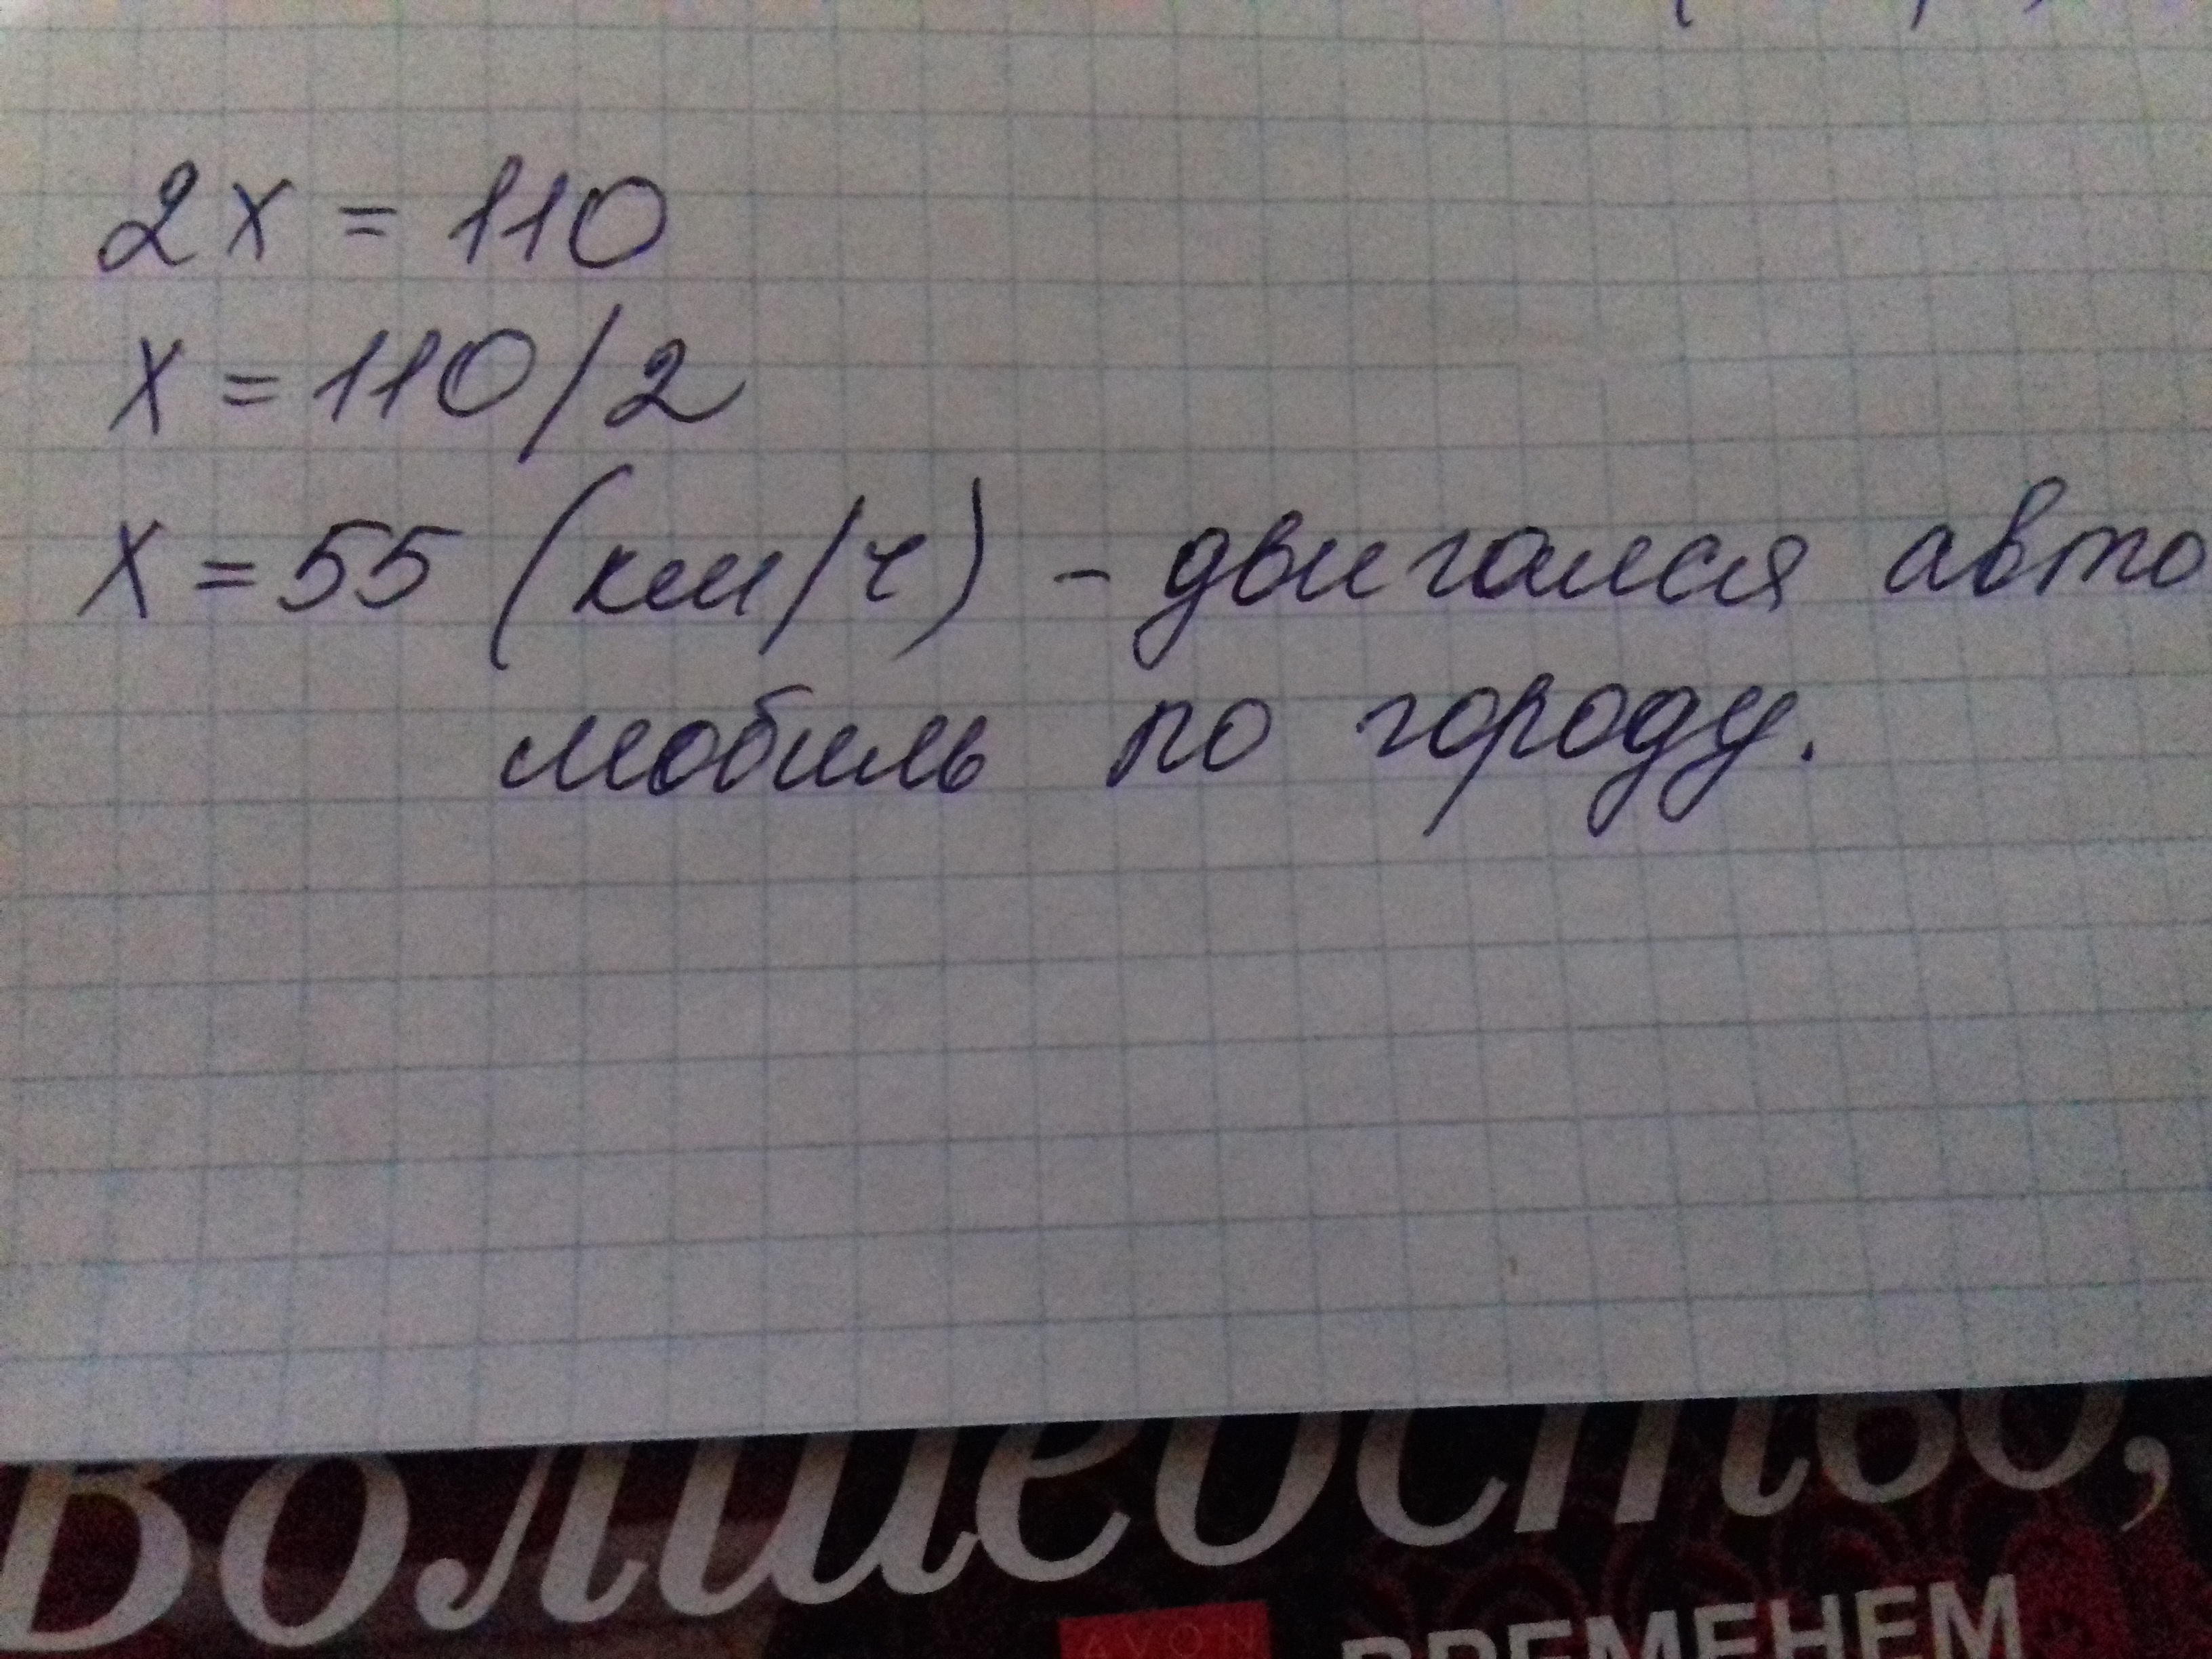 2x = 110
x = 110/2
x = 55 (км/ч) - двигался авто
мобиль по городу.
Волшебство,
AVON
ВРЕМЕНЕМ